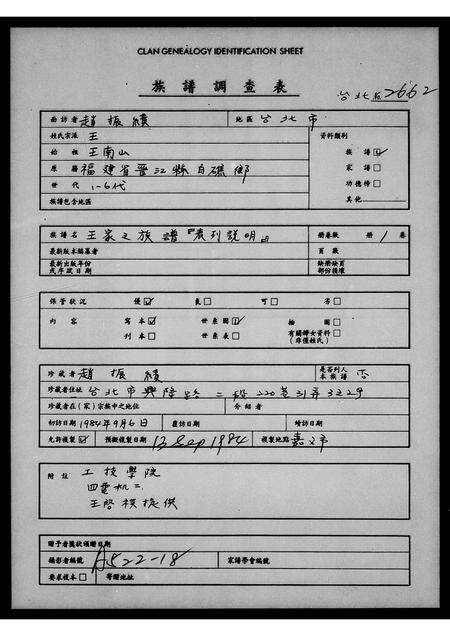 CLAN GENEALOGY IDENTIFICATION SHEET
族譜調查表
台北縣2662
面訪者 趙振績 地區 台北市
姓氏宗派 王 資料類別
始祖 王南山 族譜☑
原籍 福建省晋江縣白礁鄉 家譜□
世代 1-6代 功德榜□
族譜包含地區 其他
族譜名 王家之族譜『表列說明』 冊卷數 冊 1 卷
最新版本編纂者 頁數
最新出版年份或序跋日期 缺冊缺頁部份損壞
保管狀況 優☑ 良□ 可□ 劣□
內容 寫本☑ 世系圖☑ 繪圖□
刊本□ 世系表□ 有關婦女資料□(非僅姓氏)
珍藏者 趙振績 是否列入本族譜 否
珍藏者住址 台北市興隆路二段220巷31弄3之2号
珍藏者在(家)宗族中之地位 介紹者
初訪日期 1984年9月6日 覆訪日期 續訪日期
允許複製☑ 預擬複製日期 13 Sep 1984 複製地點
附註 工技學院
四電机二
王啓祺提供
贈予者獎狀頒贈日期
攝影者編號 A522-18 家譜學會編號
要求複本□ 寄贈地址